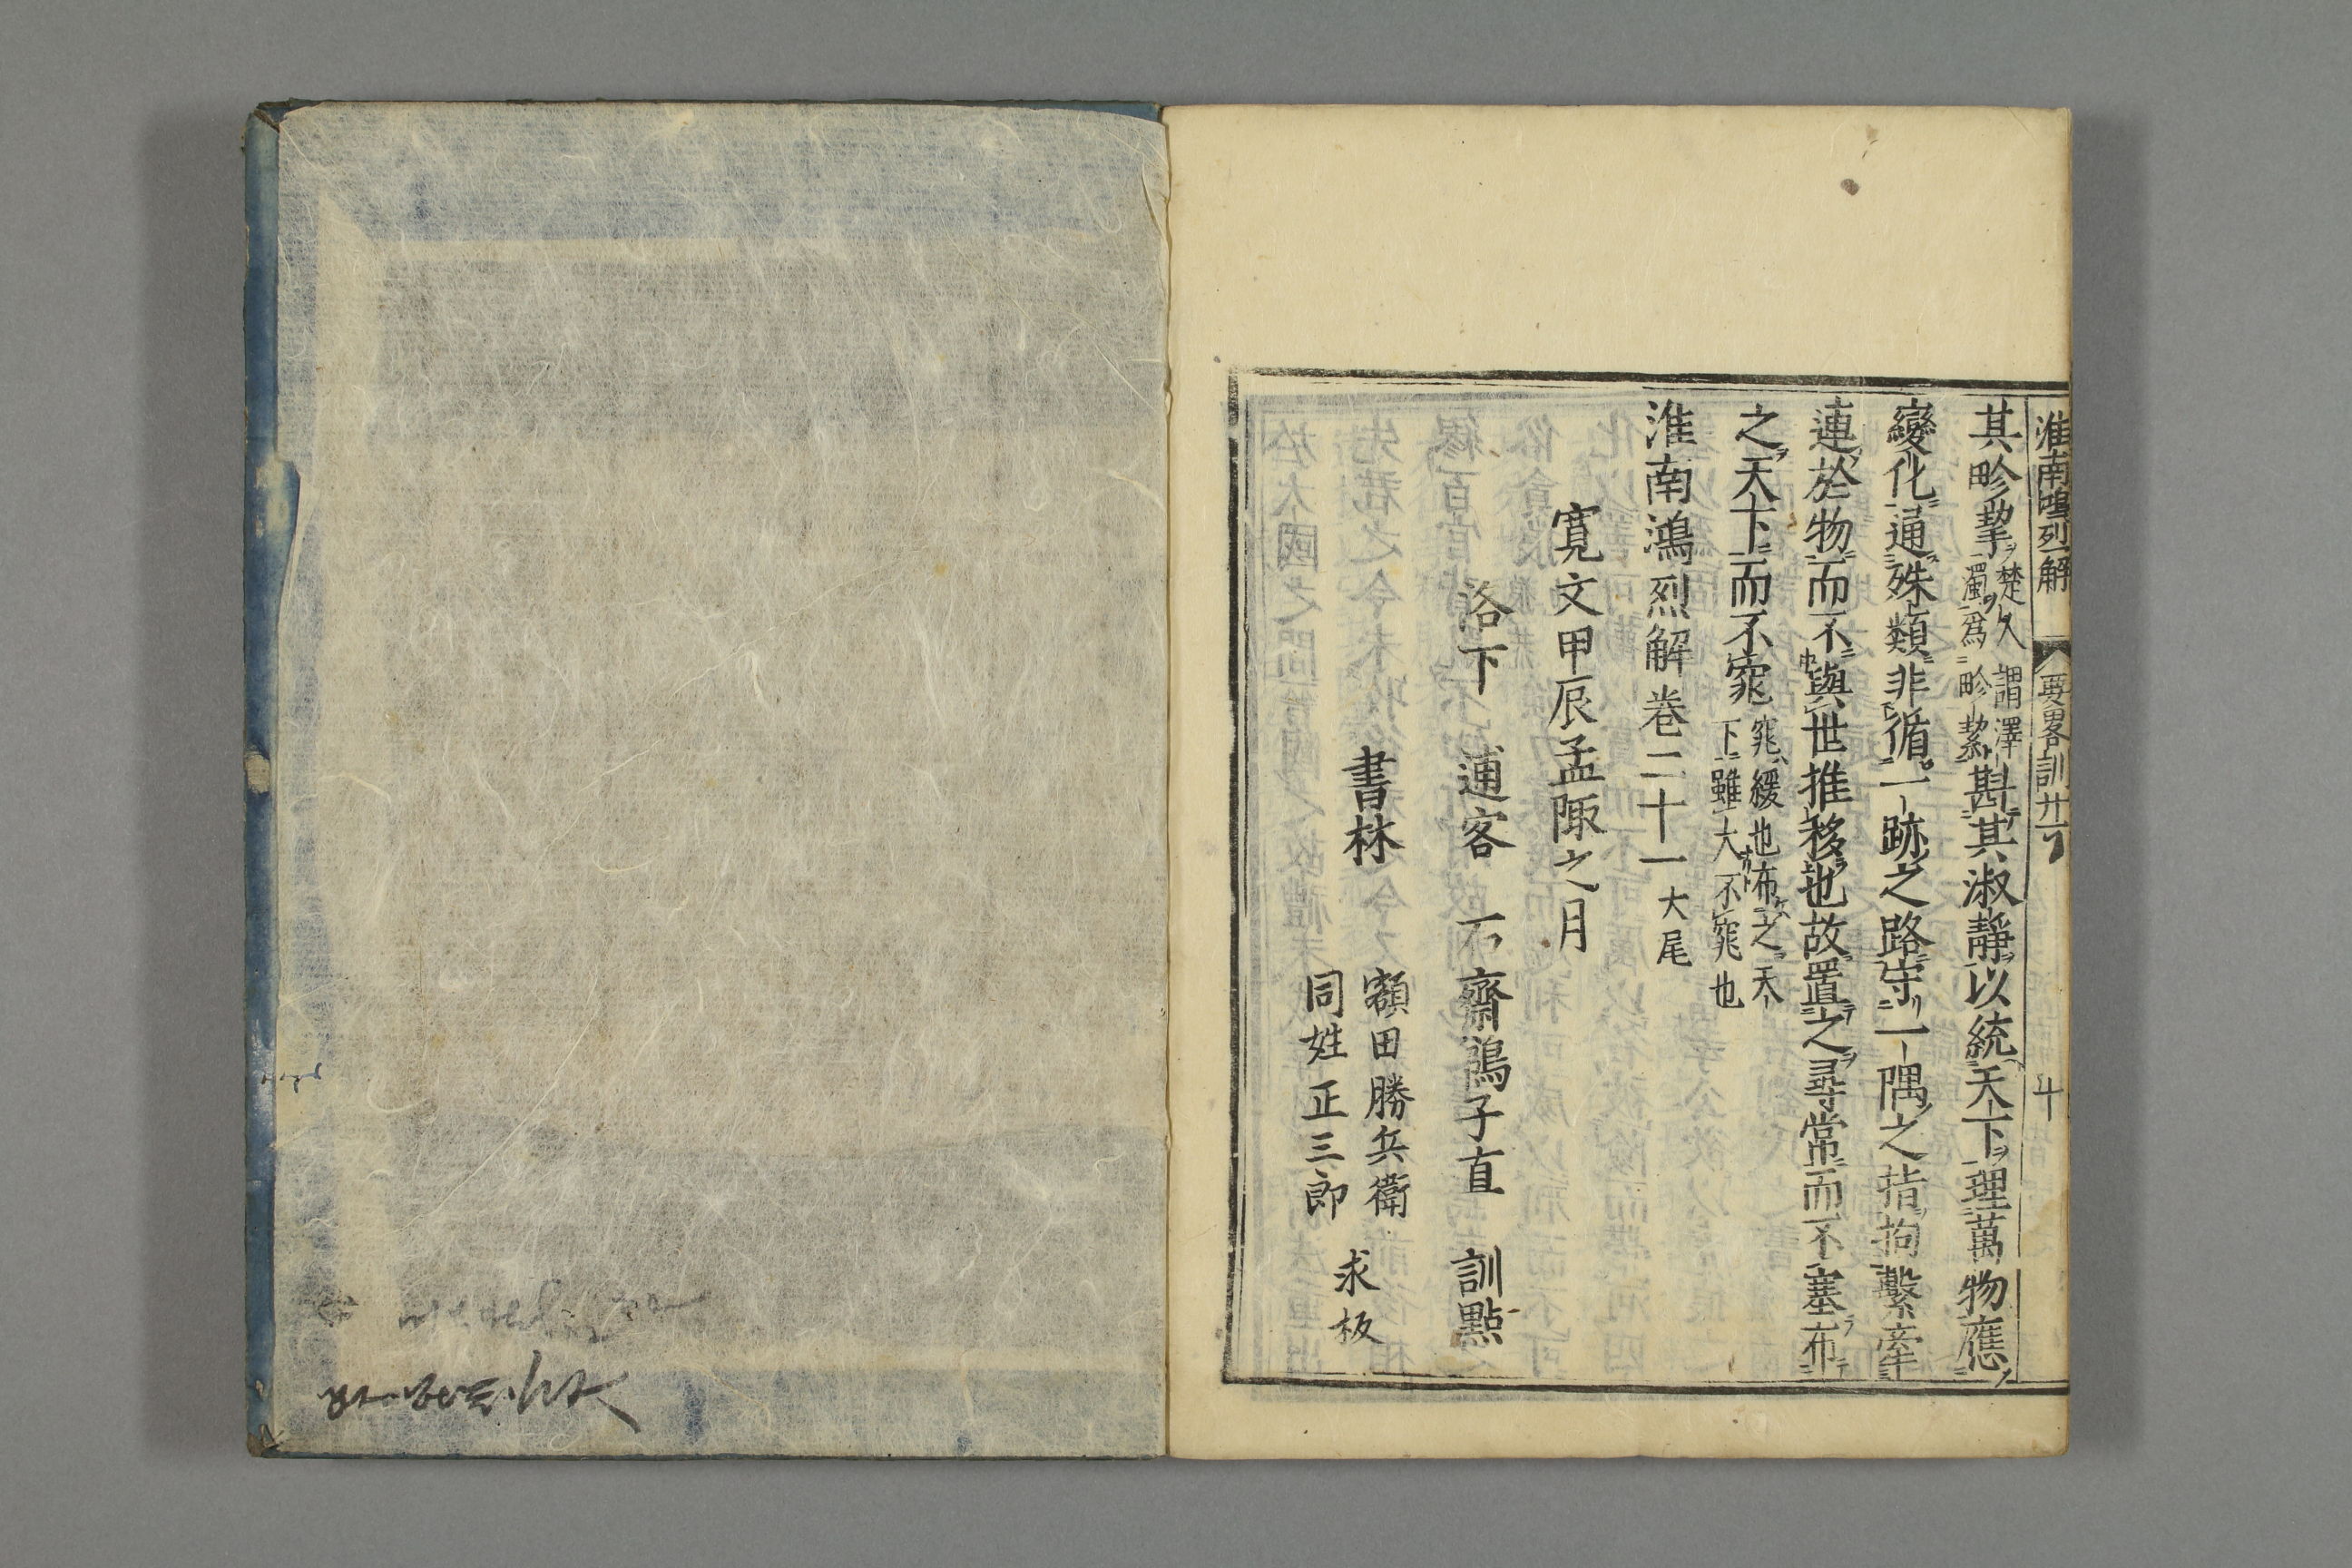 淮南鴻烈解 要畧訓廿一 十
其畛挈楚人謂澤濁爲畛挈斟其淑靜以統天下理萬物應
變化通殊類非循一跡之路守一隅之指拘繫牽
連於物而不與世推移也故置之尋常而不塞布
之天下而不窕窕緩也布之天下雖大不窕也
淮南鴻烈解卷二十一大尾
寛文甲辰孟陬之月
洛下 逋客 石齋鵜子直 訓點
書林
額田勝兵衛
同姓正三郎
求板